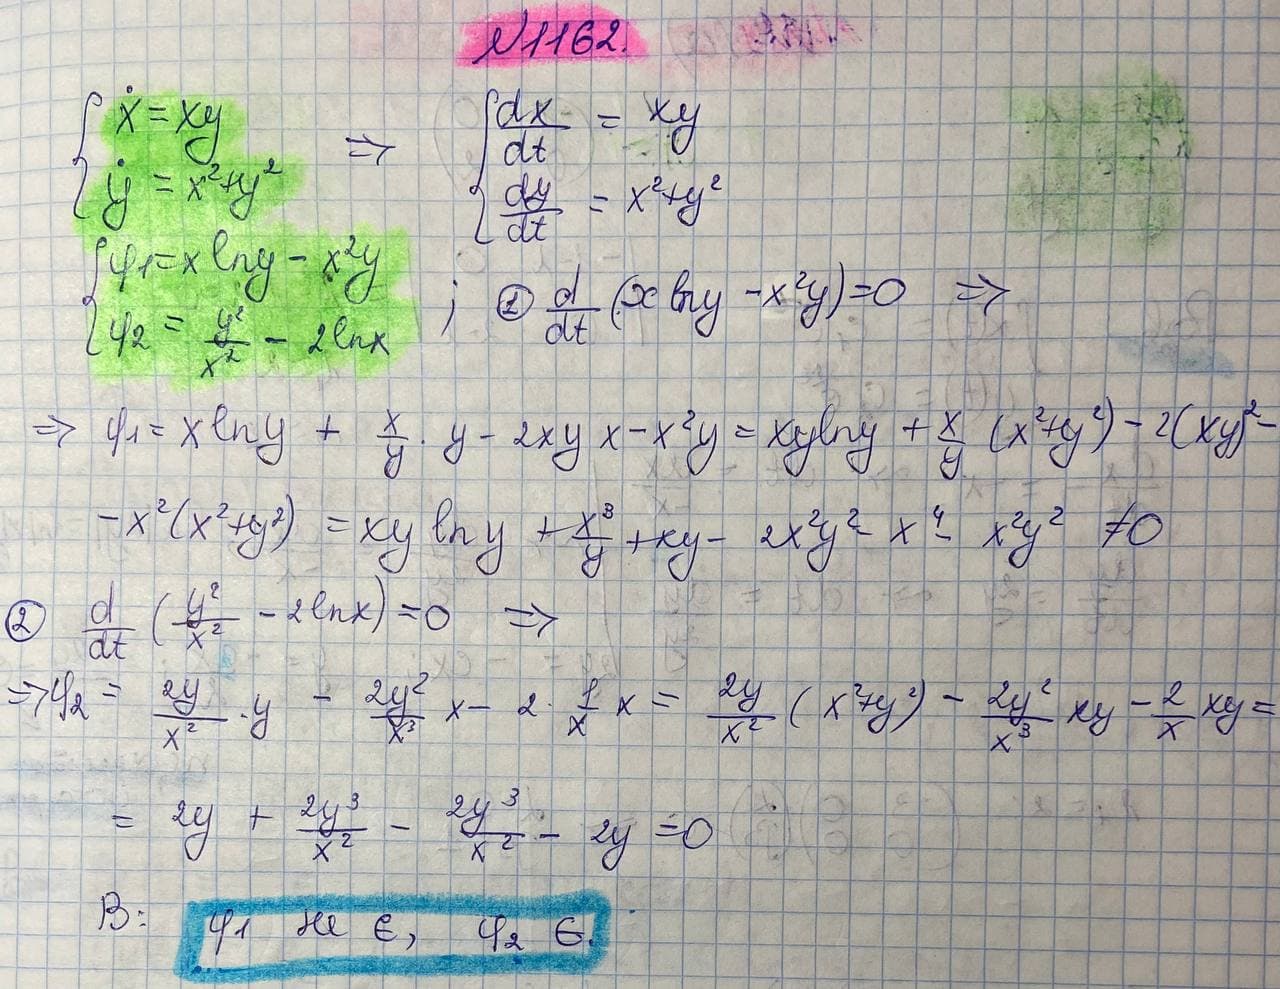 №1162.
{ ẋ = xy ⇒ { dx/dt = xy
ẏ = x²+y² dy/dt = x²+y²
{ φ1 = x lny - x²y
φ2 = y²/x² - 2lnx ; ① d/dt (x lny - x²y) = 0 ⇒
⇒ φ1 = x lny + x/y · y - 2xy x - x²y = xy lny + x/y (x²+y²) - 2(xy)² -
- x²(x²+y²) = xy lny + x³/y + xy - 2x²y² - x⁴ - x²y² ≠ 0
② d/dt (y²/x² - 2lnx) = 0 ⇒
⇒ φ2 = 2y/x² · y - 2y²/x³ x - 2 · 1/x x = 2y/x² (x²+y²) - 2y²/x³ xy - 2/x xy =
= 2y + 2y³/x² - 2y³/x² - 2y = 0
В: φ1 не є, φ2 є.